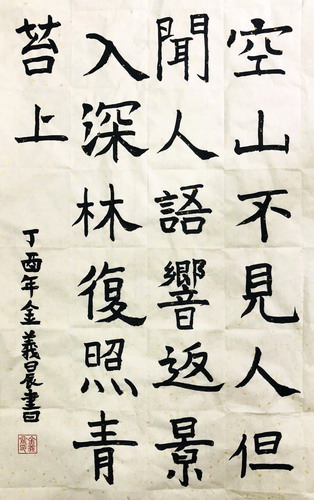 空山不見人但
聞人語響返景
入深林復照青
苔上
丁酉年金義晨書